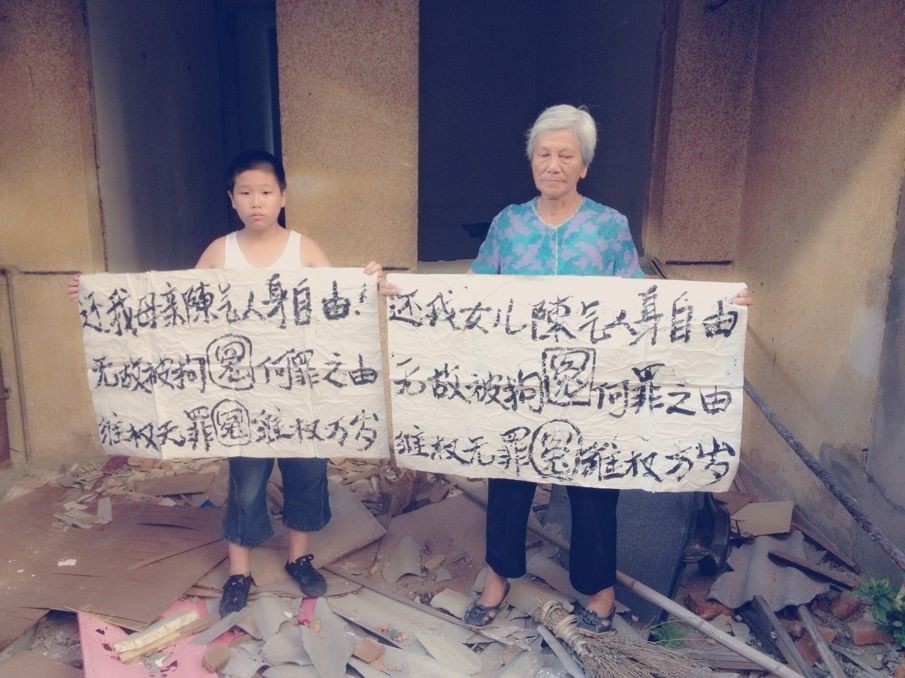 还我母亲陳乞人身自由!
无故被拘冤何罪之由
维权无罪冤维权万岁
还我女儿陳乞人身自由
无故被拘冤何罪之由
维权无罪冤维权万岁